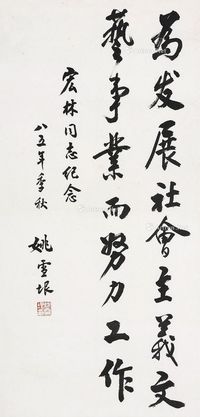 为发展社會主義文
藝事業而努力工作
宏林同志纪念
八五年季秋
姚雪垠